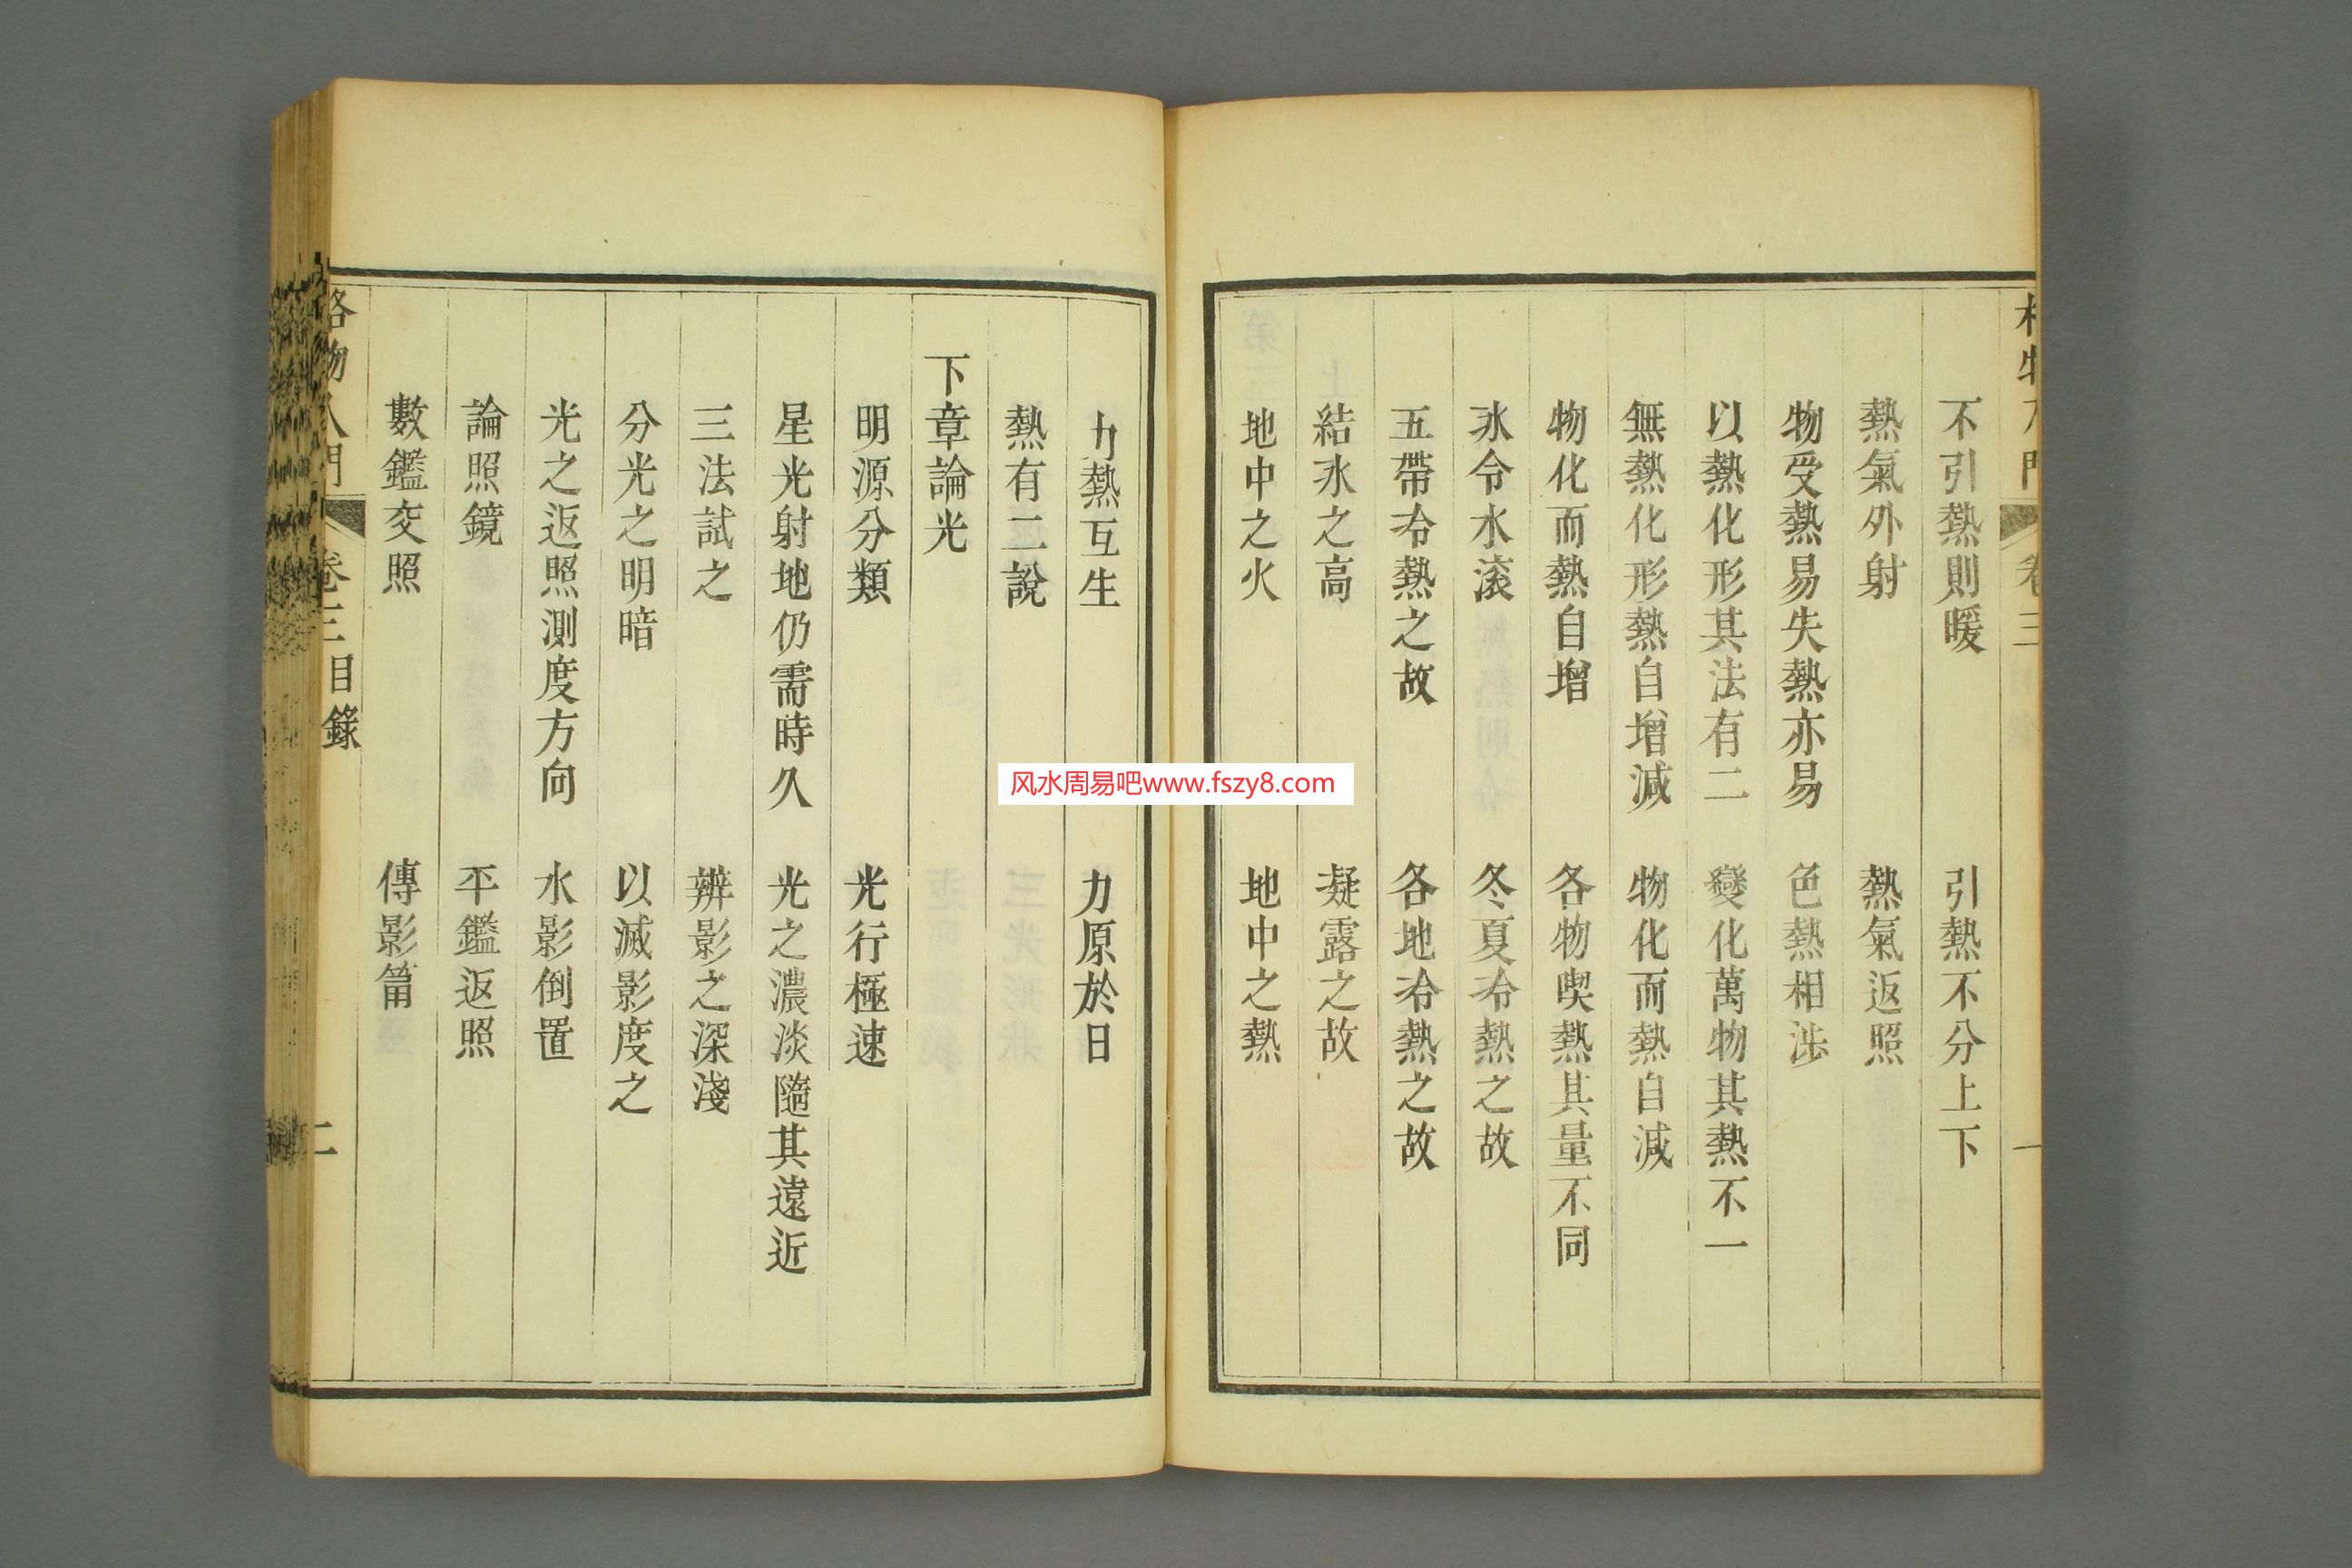 格物入門 卷三 一
不引熱則暖 引熱不分上下
熱氣外射 熱氣返照
物受熱易失熱亦易 色熱相涉
以熱化形其法有二 變化萬物其熱不一
無熱化形熱自增減 物化而熱自減
物化而熱自增 各物喫熱其量不同
氷令水滚 冬夏冷熱之故
五帶冷熱之故 各地冷熱之故
結氷之高 凝露之故
地中之火 地中之熱
力熱互生 力原於日
熱有二說
下章論光
明源分類 光行極速
星光射地仍需時久 光之濃淡隨其遠近
三法試之 辨影之深淺
分光之明暗 以滅影度之
光之返照測度方向 水影倒置
論照鏡 平鑑返照
數鑑交照 傳影筩
格物入門 卷三 目錄 二
风水周易吧www.fszy8.com